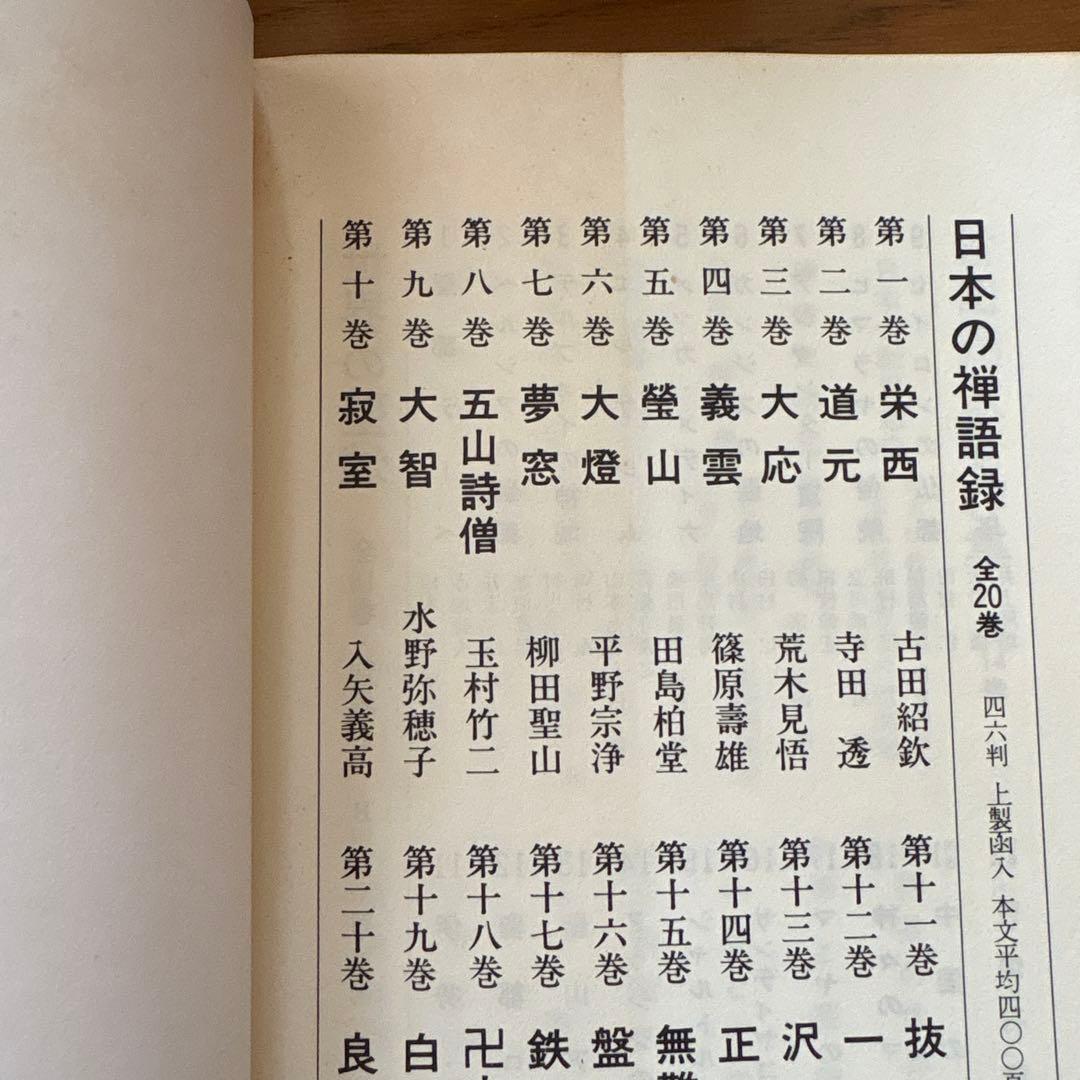 日本の禅語録 全20巻 四六判 上製函入 本文平均四〇〇頁
第一巻 栄西 古田紹欽
第二巻 道元 寺田 透
第三巻 大応 荒木見悟
第四巻 義雲 篠原壽雄
第五巻 瑩山 田島柏堂
第六巻 大燈 平野宗浄
第七巻 夢窓 柳田聖山
第八巻 五山詩僧 玉村竹二
第九巻 大智 水野弥穂子
第十巻 寂室 入矢義高
第十一巻 抜
第十二巻 一
第十三巻 沢
第十四巻 正
第十五巻 無難
第十六巻 盤
第十七巻 鉄
第十八巻 卍
第十九巻 白
第二十巻 良